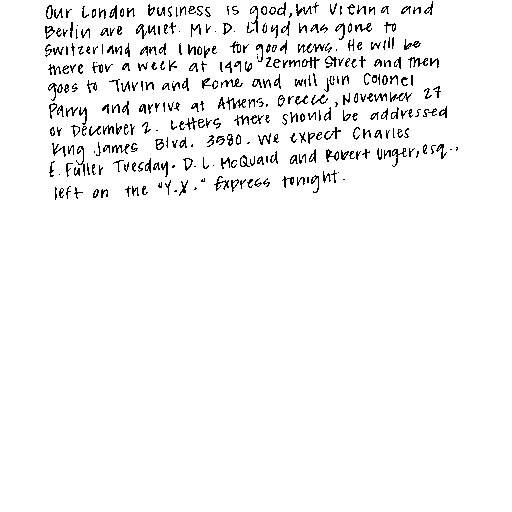 Our London business is good, but Vienna and
Berlin are quiet. Mr. D. Lloyd has gone to
Switzerland and I hope for good news. He will be
there for a week at 1496 Zermott Street and then
goes to Turin and Rome and will join Colonel
Parry and arrive at Athens, Greece, November 27
or December 2. Letters there should be addressed
King James Blvd. 3580. We expect Charles
E. Fuller Tuesday. D. L. McQuaid and Robert Unger, esq.,
left on the "Y.X." Express tonight.